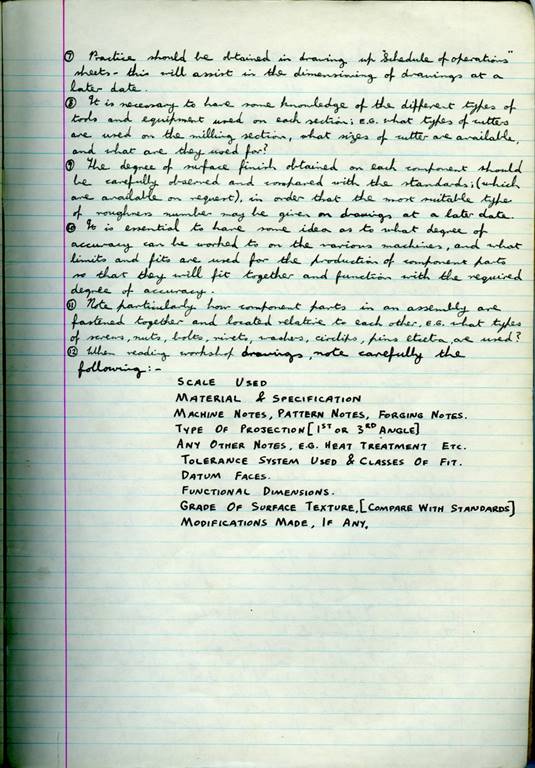 ⑦ Practice should be obtained in drawing up "Schedule of operations"
sheets - this will assist in the dimensioning of drawings at a
later date.
⑧ It is necessary to have some knowledge of the different types of
tools and equipment used on each section; E.G. what types of cutters
are used on the milling section, what sizes of cutter are available,
and what are they used for?
⑨ The degree of surface finish obtained on each component should
be carefully observed and compared with the standards; (which
are available on request), in order that the most suitable type
of roughness number may be given on drawings at a later date.
⑩ It is essential to have some idea as to what degree of
accuracy can be worked to on the various machines, and what
limits and fits are used for the production of component parts
so that they will fit together and function with the required
degree of accuracy.
⑪ Note particularly how component parts in an assembly are
fastened together and located relative to each other, E.G. what types
of screws, nuts, bolts, rivets, washers, circlips, pins etcetra, are used?
⑫ When reading workshop drawings, note carefully the
following:-
SCALE USED
MATERIAL & SPECIFICATION
MACHINE NOTES, PATTERN NOTES, FORGING NOTES.
TYPE OF PROJECTION [1ST OR 3RD ANGLE]
ANY OTHER NOTES, E.G. HEAT TREATMENT ETC.
TOLERANCE SYSTEM USED & CLASSES OF FIT.
DATUM FACES.
FUNCTIONAL DIMENSIONS.
GRADE OF SURFACE TEXTURE, [COMPARE WITH STANDARDS]
MODIFICATIONS MADE, IF ANY.